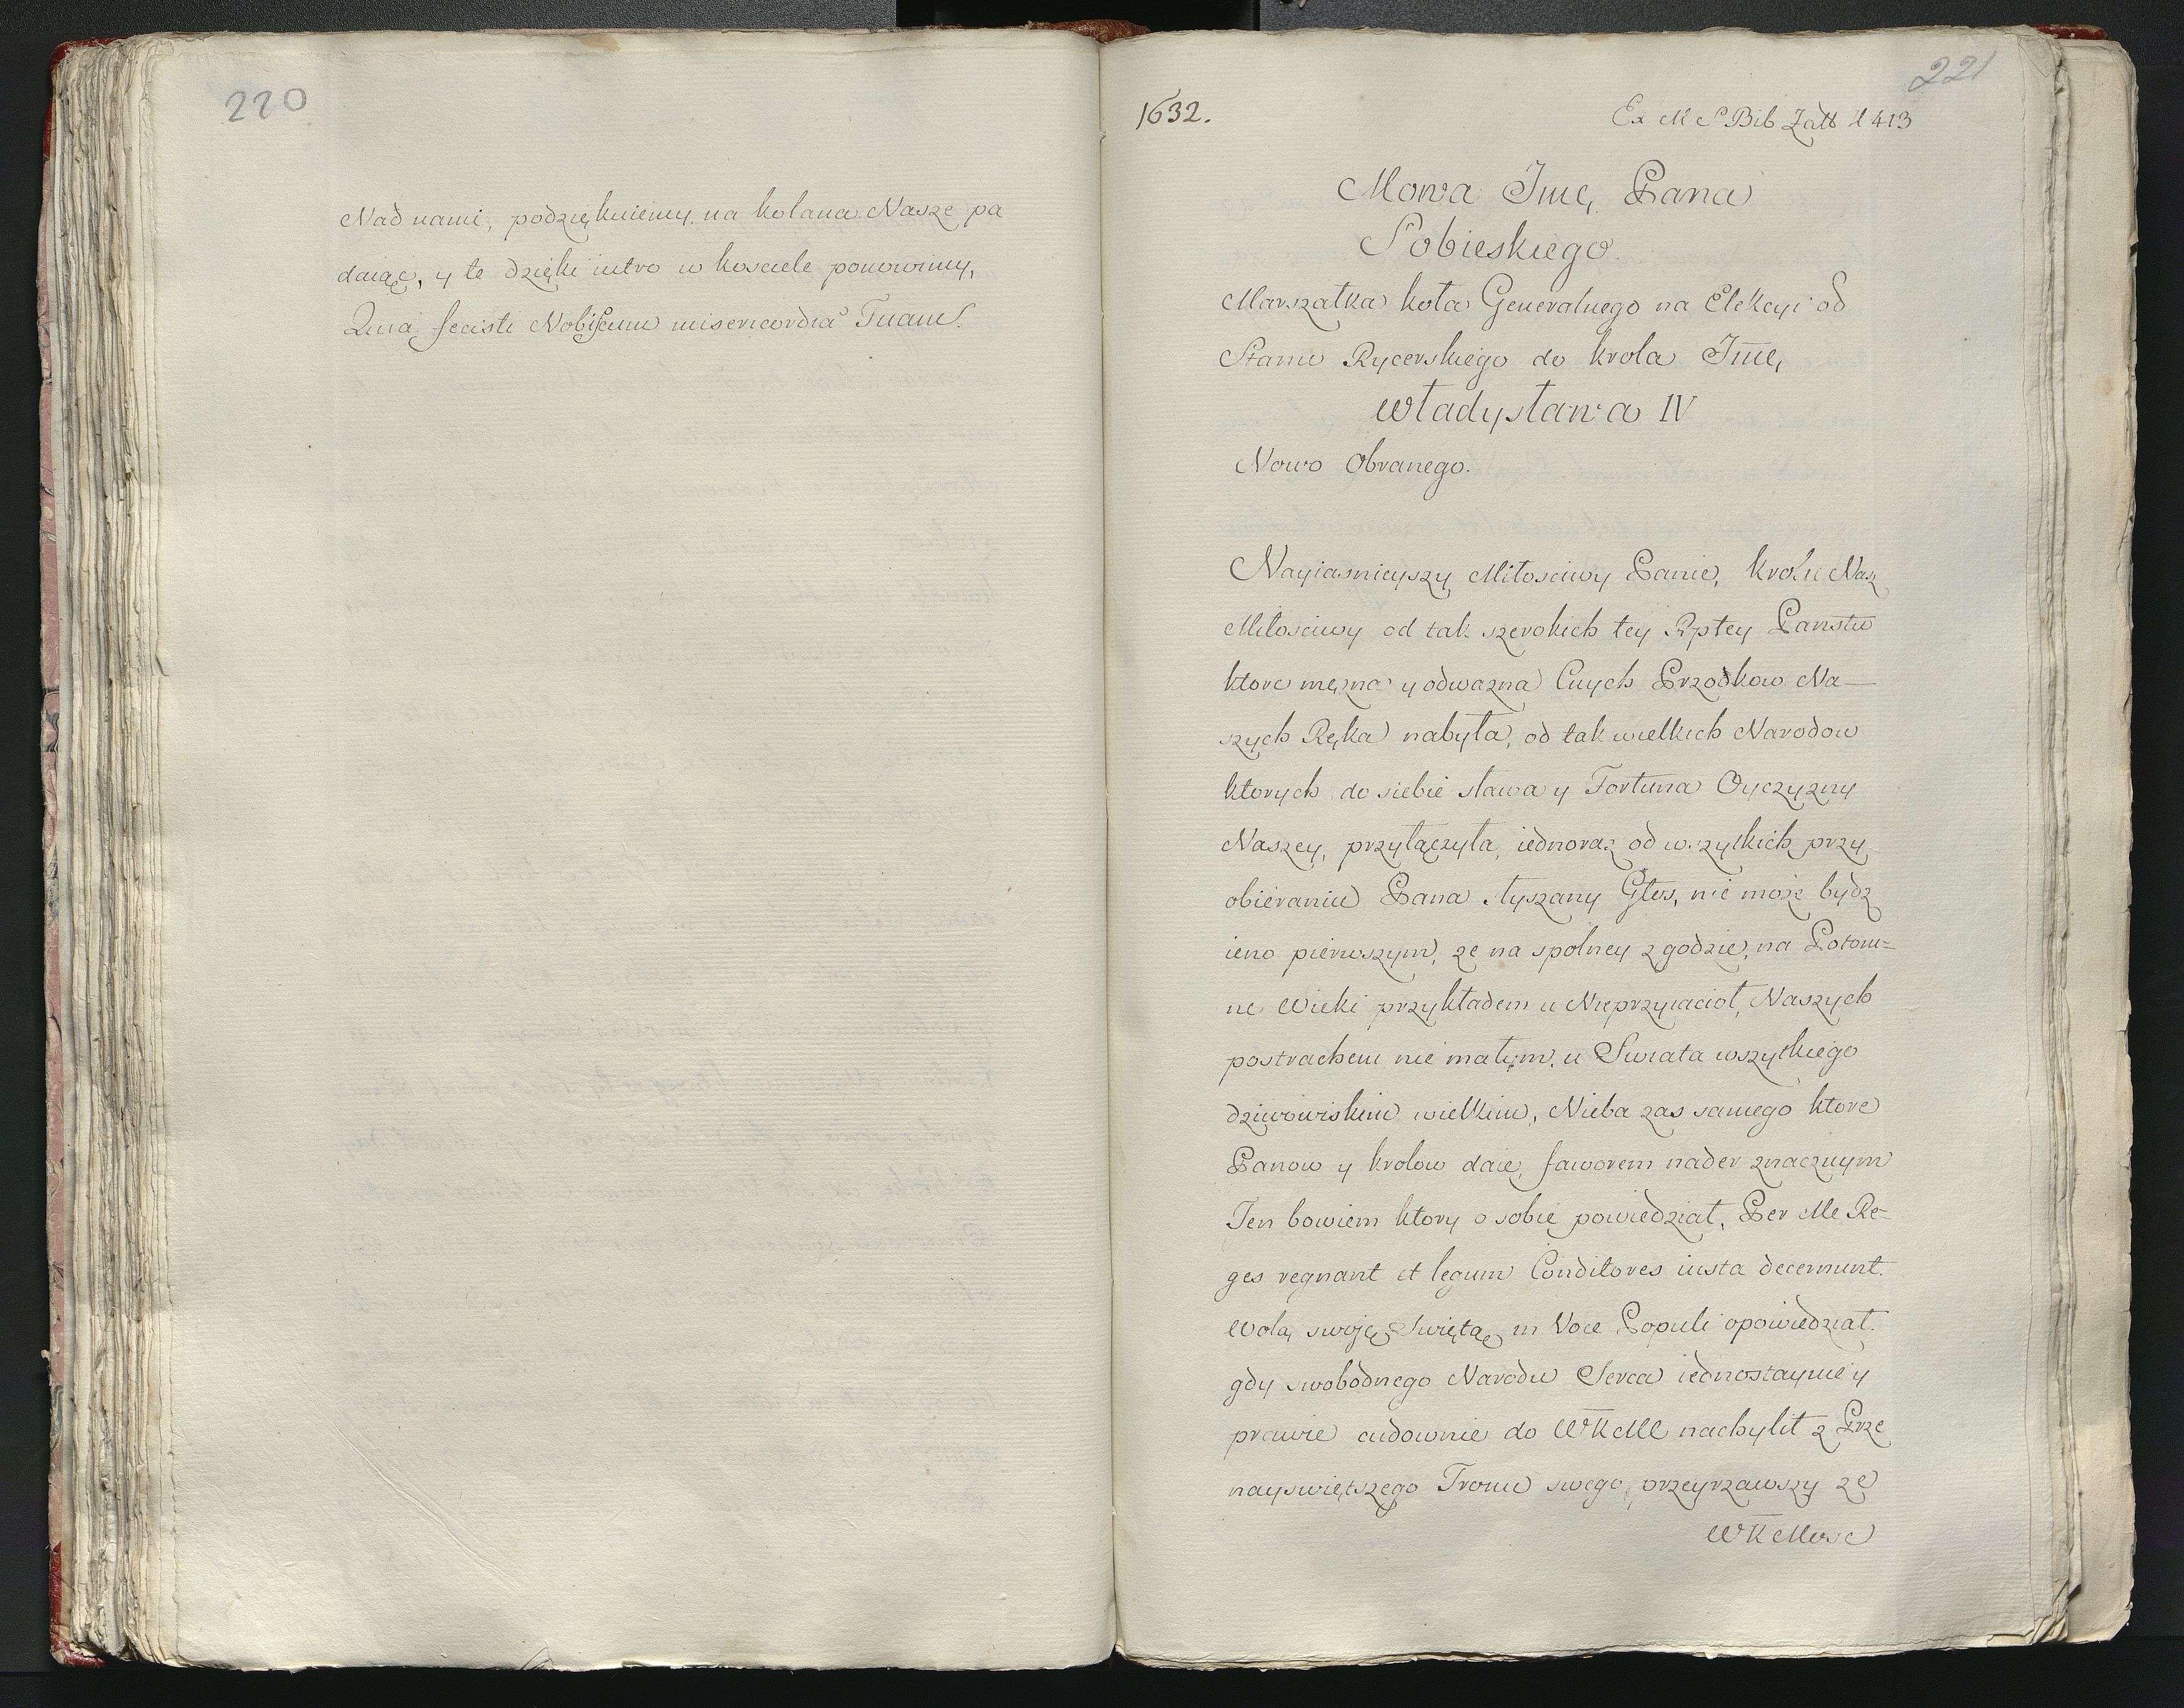 220
Nad nami, podziękuiemy na kolana Nasze pa
daiąc, y te dzięki iutro w kosciele ponowimy,
Quia fecisti Nobiscum misericordia Tuam.
221
1632.
Ex M S Bib Zału 413
Mowa Jmę Pana
Sobieskiego
Marszałka koła Generalnego na Elekcyi od
Stanu Rycerskiego do krola Jmę,
Władysława IV
Nowo Obranego.
Nayiasnieyszy Miłosciwy Panie, krolu Nasz
Miłosciwy od tak szerokich tey Rptey Panstw
ktore mężna y odważna Cnych Przodkow Na-
szych Ręka nabyła, od tak wielkich Narodow
ktorych do siebie sława y Fortuna Oyczyzny
Naszey, przyłączyła, iednoraz od wszytkich przy
obieraniu Pana słyszany Głos, nie może bydz
ieno pierwszym, ze na spolney zgodzie, na Potom=
ne Wieki przykładem u Nieprzyiacioł, Naszych
postrachem nie małym, u Swiata wszytkiego
dziwowiskiem wielkim, Nieba zas samego ktore
Panow y krolow daie, faworem nader znacznym
Ten bowiem ktory o sobie powiedział, Per Me Re-
ges regnant et legum Conditores iusta decernunt.
Wolą swoję Swiętą in Voce Populi opowiedział.
gdy swobodnego Narodu Serca iednostaynie y
prawie cudownie do WKMM nachylił z Prze
nayswiętszego Tronu swego, przeyrzawszy ze
WKMosc